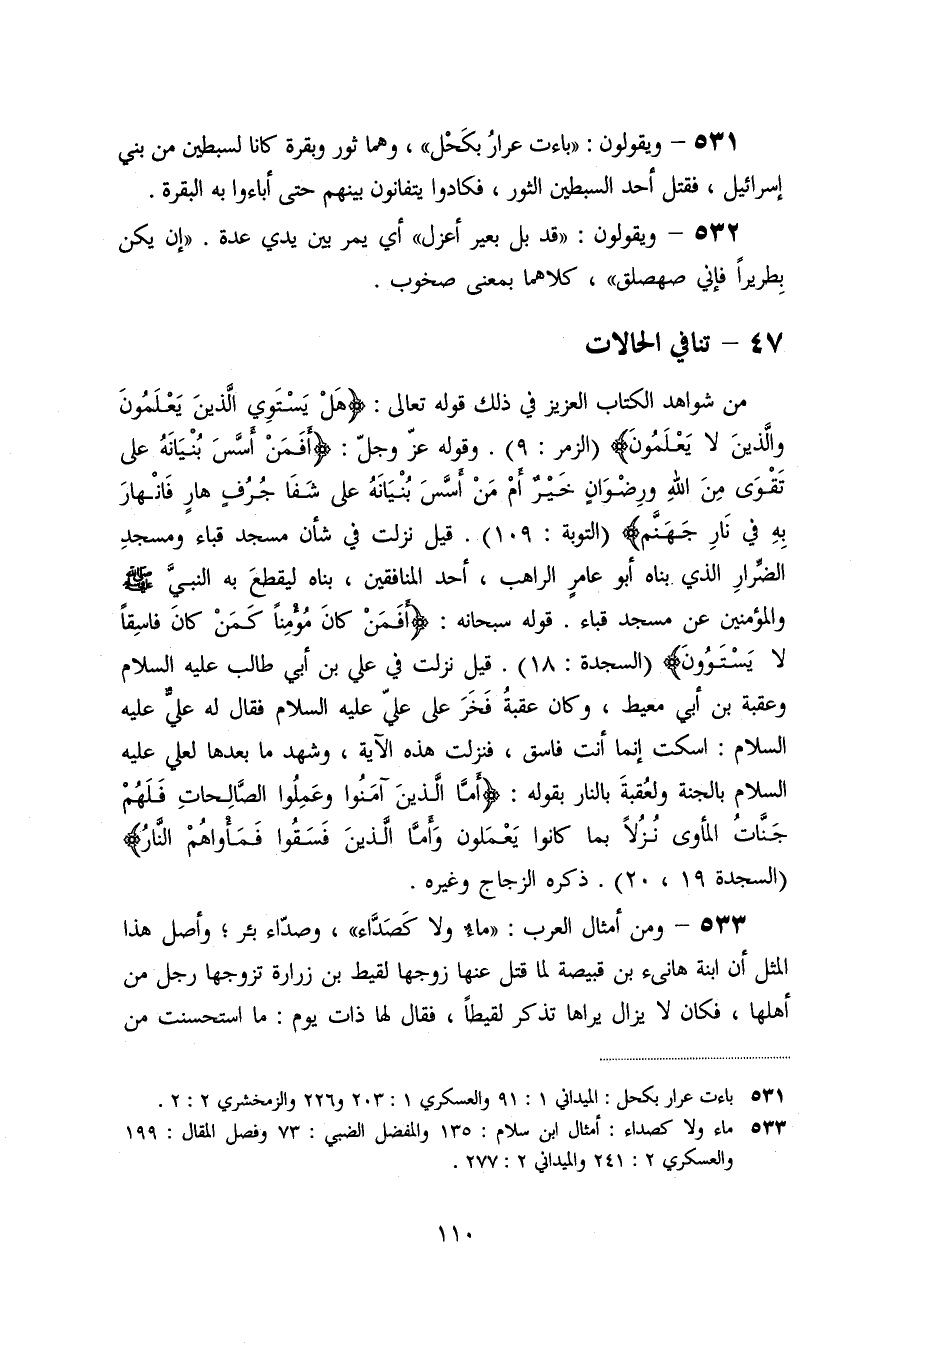 ٥٣١ – ويقولون : «باءت عرارُ بكَحْل» ، وهما ثور وبقرة كانا لسبطين من بني
إسرائيل ، فقتل أحد السبطين الثور ، فكادوا يتفانون بينهم حتى أباءوا به البقرة .
٥٣٢ – ويقولون : «قد بل بعير أعزل» أي يمر بين يدي عدة . «إن يكن
بِطريراً فإني صهصلق» ، كلاهما بمعنى صخوب .
٤٧ – تنافي الحالات
من شواهد الكتاب العزيز في ذلك قوله تعالى : ﴿هَلْ يَسْتَوِي الَّذينَ يَعْلَمُونَ
والَّذينَ لا يَعْلَمُونَ﴾ (الزمر : ٩) . وقوله عزّ وجلّ : ﴿أَفَمَنْ أَسَّسَ بُنْيَانَهُ على
تَقْوَى مِنَ اللهِ ورِضْوَانٍ خَيْرٌ أَمْ مَنْ أَسَّسَ بُنْيَانَهُ على شَفَا جُرُفٍ هارٍ فَانْهارَ
بِهِ في نَارِ جَهَنَّم﴾ (التوبة : ١٠٩) . قيل نزلت في شأن مسجد قباء ومسجدِ
الضِّرارِ الذي بناه أبو عامرٍ الراهب ، أحد المنافقين ، بناه ليقطعَ به النبيَّ ﷺ
والمؤمنين عن مسجد قباء . قوله سبحانه : ﴿أَفَمَنْ كانَ مُؤْمِناً كَمَنْ كانَ فاسِقاً
لا يَسْتَوُونَ﴾ (السجدة : ١٨) . قيل نزلت في علي بن أبي طالب عليه السلام
وعقبة بن أبي معيط ، وكان عقبةُ فَخَرَ على عليّ عليه السلام فقال له عليٌّ عليه
السلام : اسكت إنما أنت فاسق ، فنزلت هذه الآية ، وشهد ما بعدها لعلي عليه
السلام بالجنة ولعُقبةَ بالنار بقوله : ﴿أَمَّا الَّذينَ آمَنُوا وعَمِلُوا الصَّالِحاتِ فَلَهُمْ
جَنَّاتُ المأوى نُزُلاً بما كانوا يَعْمَلون وَأَمَّا الَّذينَ فَسَقُوا فَمَأْواهُمْ النَّارُ﴾
(السجدة ١٩ ، ٢٠) . ذكره الزجاج وغيره .
٥٣٣ – ومن أمثال العرب : «ماءٌ ولا كَصَدَّاء» ، وصدّاء بئر ؛ وأصل هذا
المثل أن ابنة هانىء بن قبيصة لما قتل عنها زوجها لقيط بن زرارة تزوجها رجل من
أهلها ، فكان لا يزال يراها تذكر لقيطاً ، فقال لها ذات يوم : ما استحسنت من
٥٣١ باءت عرار بكحل : الميداني ١ : ٩١ والعسكري ١ : ٢٠٣ و٢٢٦ والزمخشري ٢ : ٢ .
٥٣٣ ماء ولا كصداء : أمثال ابن سلام : ١٣٥ والمفضل الضبي : ٧٣ وفصل المقال : ١٩٩
والعسكري ٢ : ٢٤١ والميداني ٢ : ٢٧٧ .
١١٠